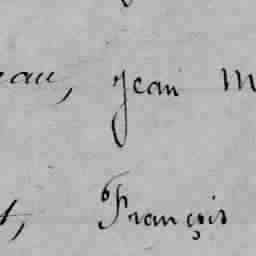 eau, Jean M
t, François